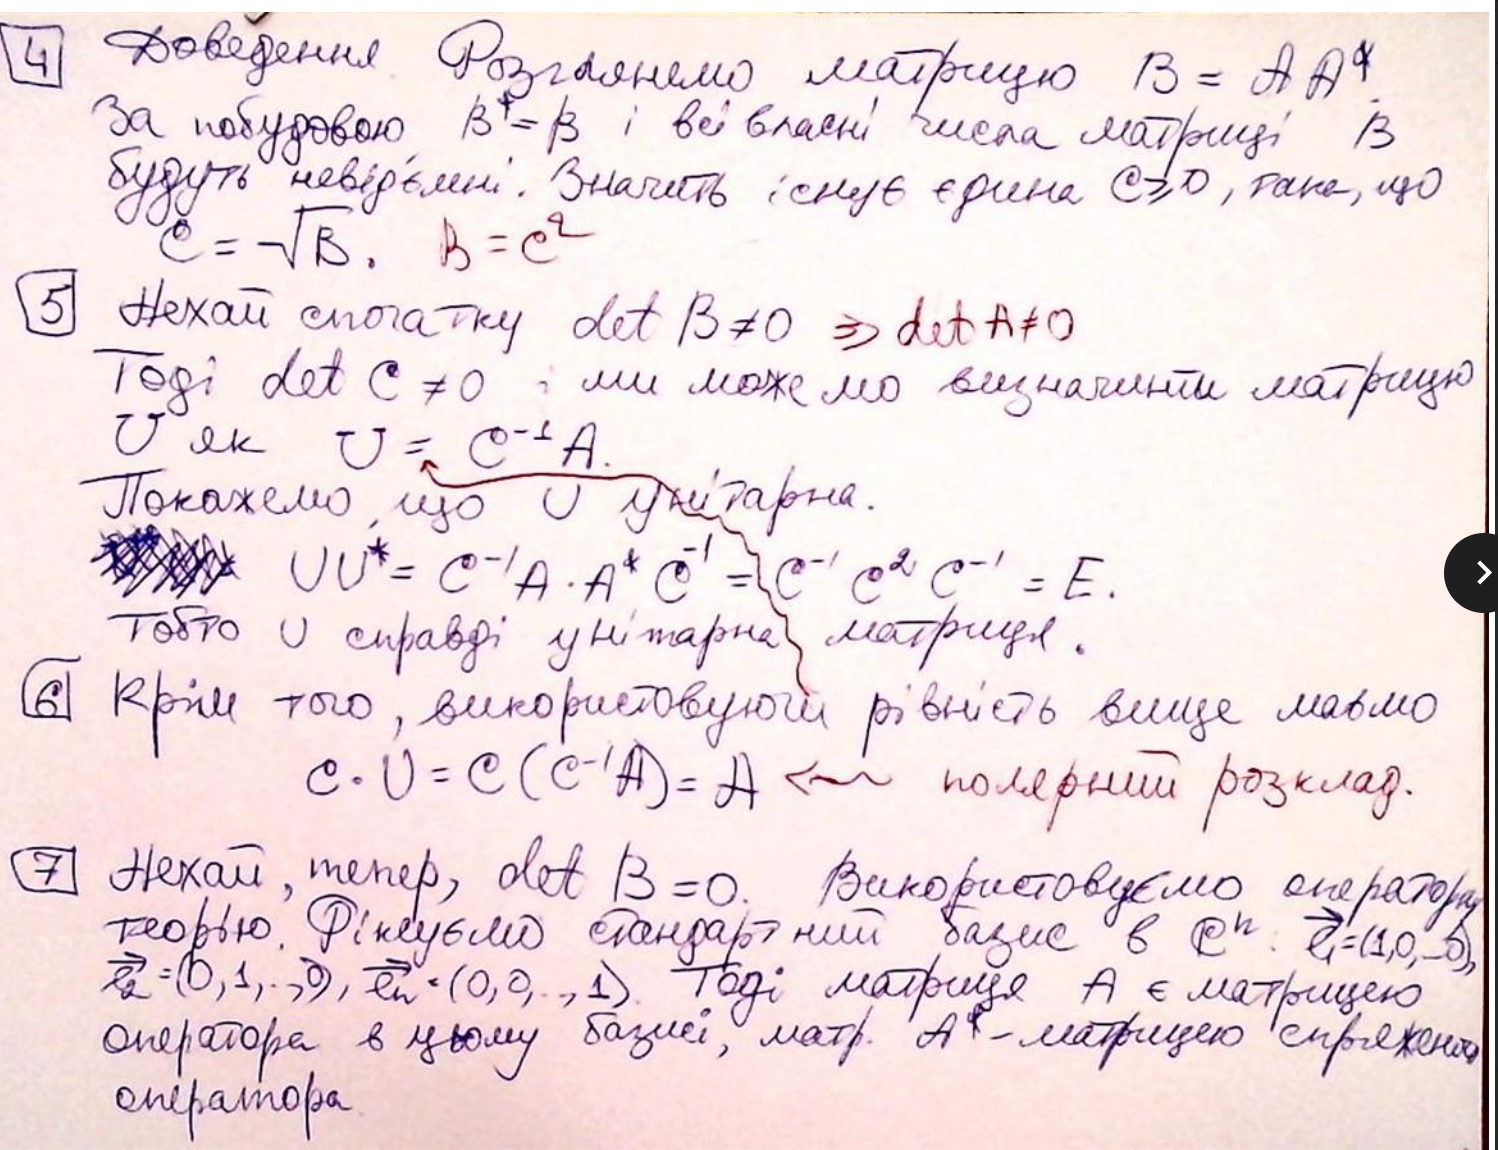 4 Доведення. Розглянемо матрицю B = A A*.
За побудовою B* = B і всі власні числа матриці B
будуть невід'ємні. Значить існує єдина C ≥ 0, така, що
C = √B. B = C²
5 Нехай спочатку det B ≠ 0 ⇒ det A ≠ 0
Тоді det C ≠ 0 і ми можемо визначити матрицю
U як U = C⁻¹A.
Покажемо, що U унітарна.
UU* = C⁻¹A · A* C⁻¹ = C⁻¹ C² C⁻¹ = E.
Тобто U справді унітарна матриця.
6 Крім того, використовуючи рівність вище маємо
C · U = C(C⁻¹A) = A ← полярний розклад.
7 Нехай, тепер, det B = 0. Використовуємо операторну
теорію. Фіксуємо стандартний базис в ℂⁿ: e⃗₁ = (1,0,..0),
e⃗₂ = (0,1,..,0), e⃗ₙ = (0,0,..,1). Тоді матриця A є матрицею
оператора в цьому базисі, матр. A* - матрицею спряженого
оператора.